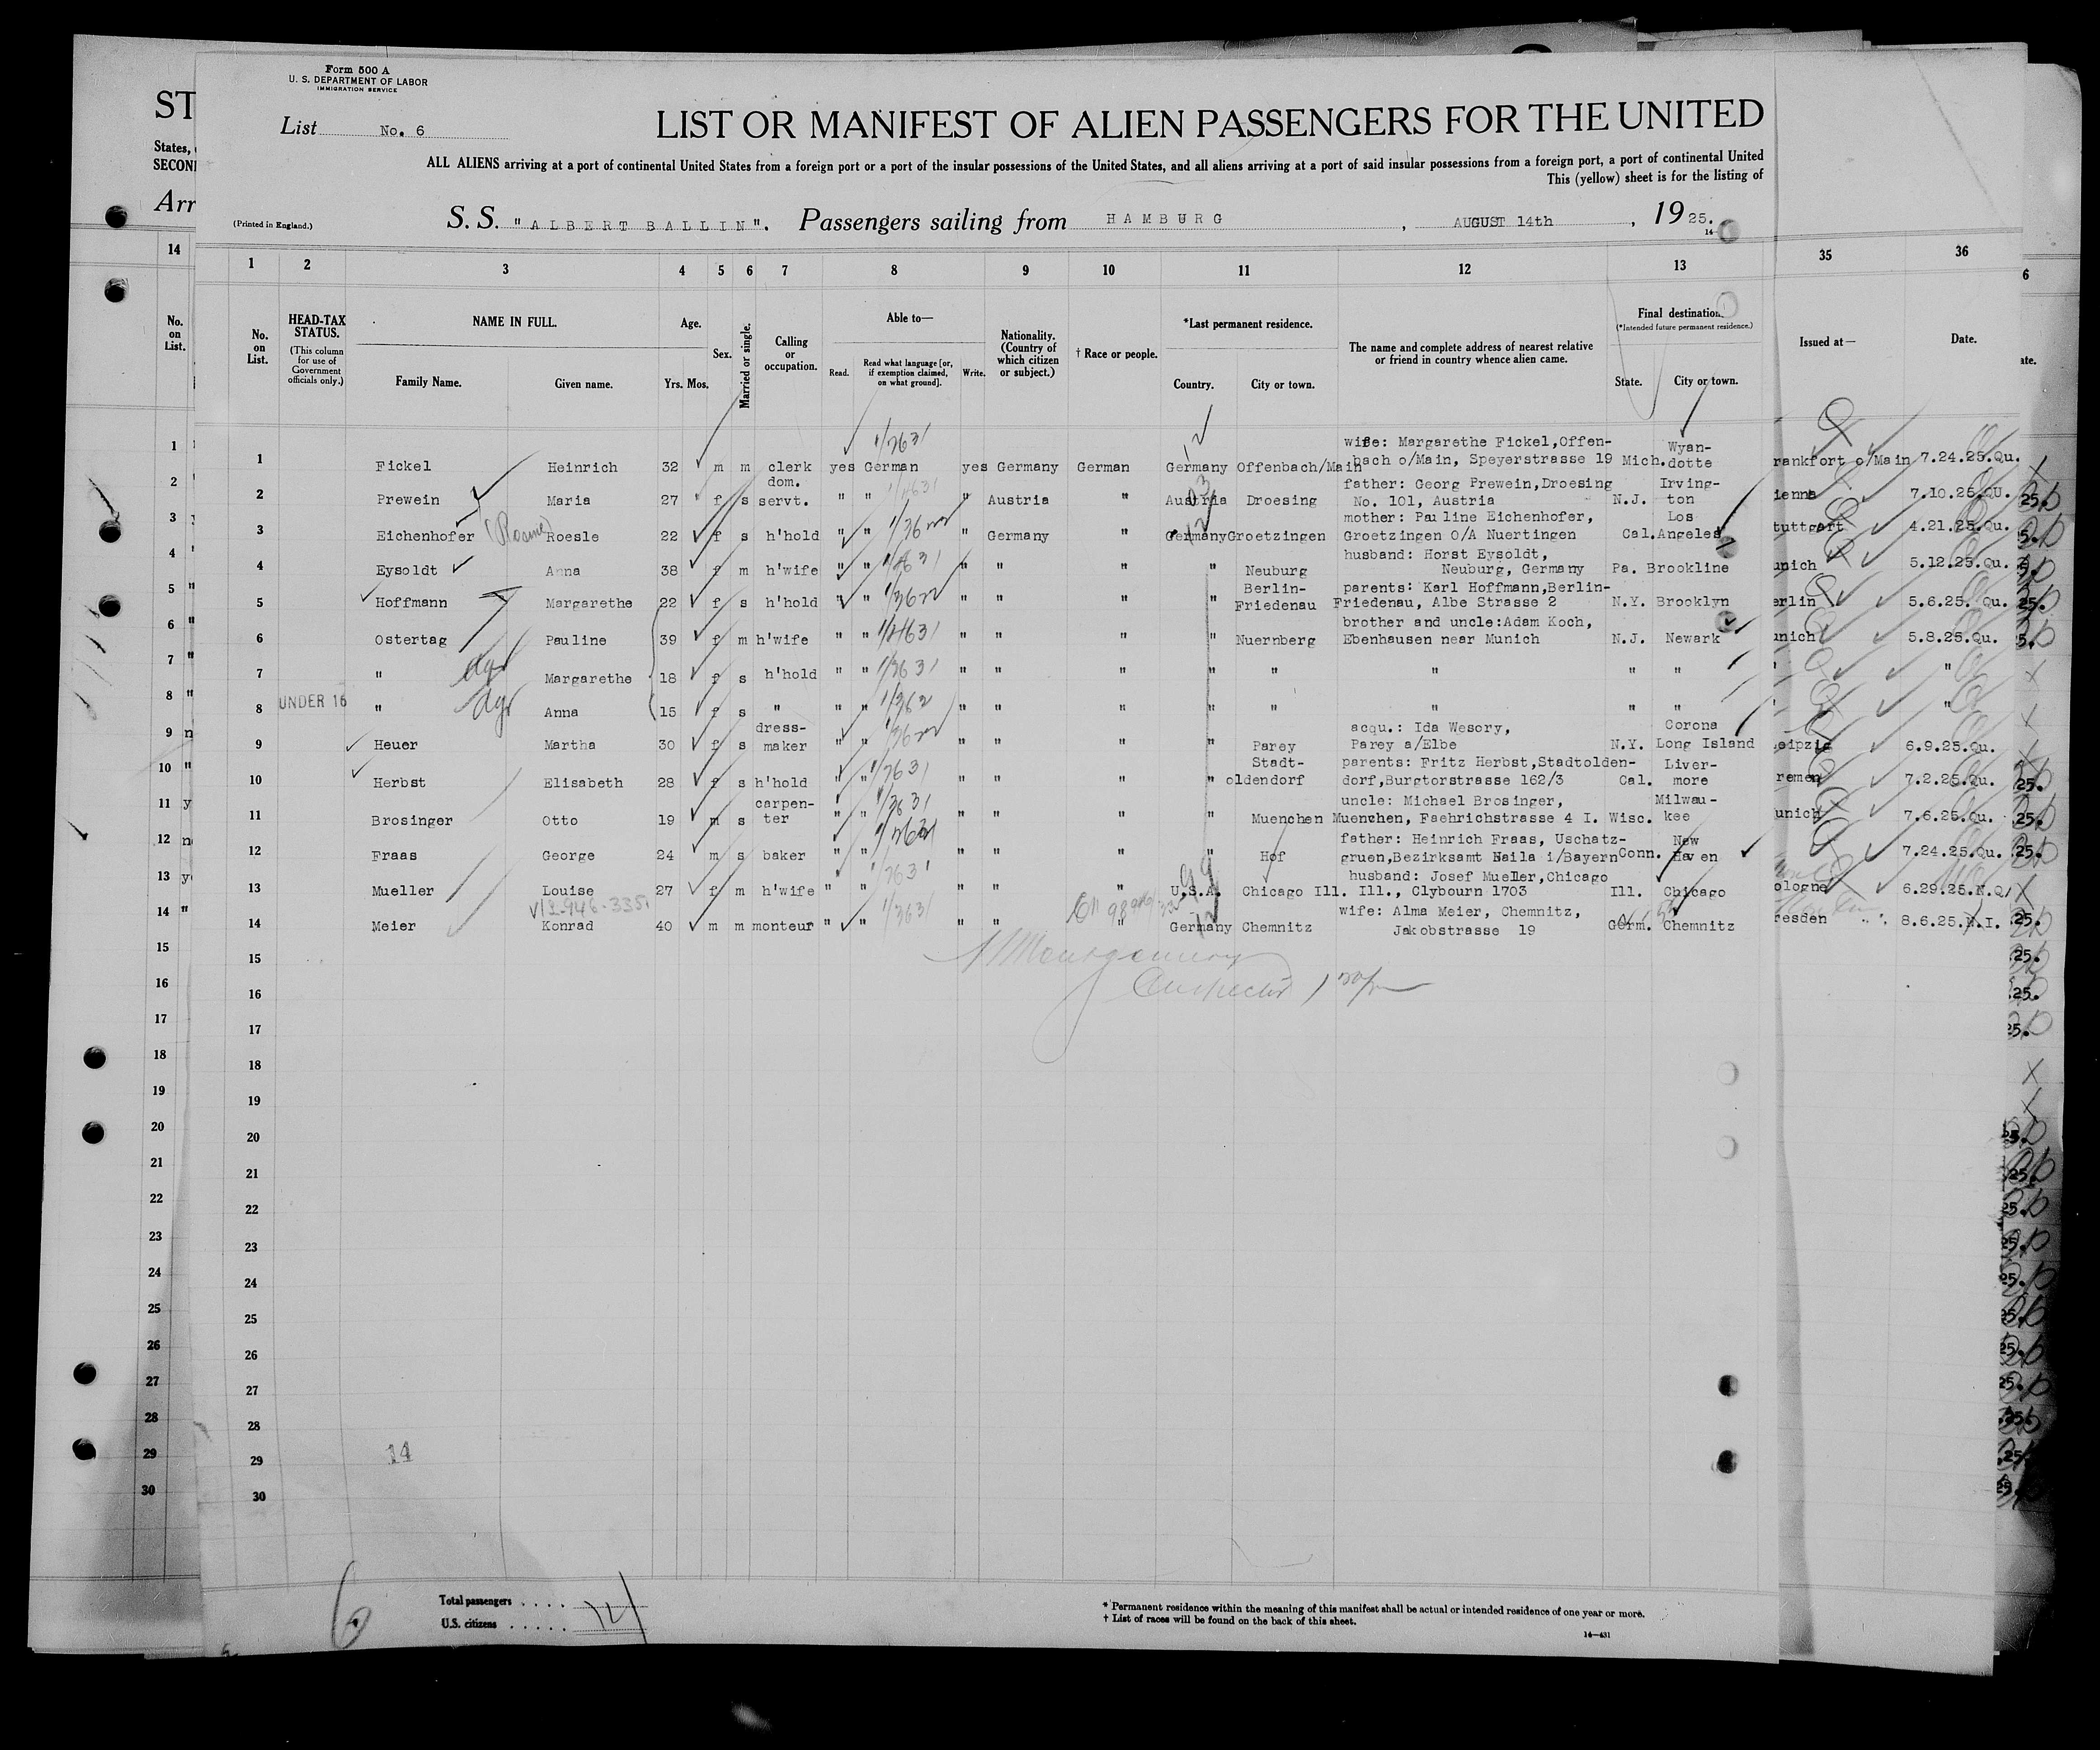 Form 500 A
U. S. DEPARTMENT OF LABOR
IMMIGRATION SERVICE
List No. 6
LIST OR MANIFEST OF ALIEN PASSENGERS FOR THE UNITED
ALL ALIENS arriving at a port of continental United States from a foreign port or a port of the insular possessions of the United States, and all aliens arriving at a port of said insular possessions from a foreign port, a port of continental United
This (yellow) sheet is for the listing of
(Printed in England.)
S. S. "ALBERT BALLIN". Passengers sailing from HAMBURG, AUGUST 14th, 1925.
ST
States,
SECON
Arr
14
No. on List.
1 2 3 4 5 6 7 8 9 10 11 12 13 35 36
No. on List.
HEAD-TAX STATUS.
(This column for use of Government officials only.)
NAME IN FULL.
Family Name. Given name.
Age.
Yrs. Mos.
Sex.
Married or single.
Calling or occupation.
Able to—
Read. Read what language [or, if exemption claimed, on what ground]. Write.
Nationality. (Country of which citizen or subject.)
† Race or people.
*Last permanent residence.
Country. City or town.
The name and complete address of nearest relative or friend in country whence alien came.
Final destination.
(*Intended future permanent residence.)
State. City or town.
Issued at— Date.
wife: Margarethe Fickel,Offen- Wyan-
1 Fickel Heinrich 32 m m clerk yes German yes Germany German Germany Offenbach/Main bach o/Main, Speyerstrasse 19 Mich. dotte rankfort o/Main 7.24.25.Qu.
dom. father: Georg Prewein,Droesing Irving-
2 Prewein Maria 27 f s servt. " " " Austria " Austria Droesing No. 101, Austria N.J. ton ienna 7.10.25.QU.
mother: Pauline Eichenhofer, Los
3 Eichenhofer Roesle 22 f s h'hold " " " Germany " Germany Groetzingen Groetzingen O/A Nuertingen Cal. Angeles tuttgart 4.21.25.Qu.
husband: Horst Eysoldt,
4 Eysoldt Anna 38 f m h'wife " " " " " " Neuburg Neuburg, Germany Pa. Brookline unich 5.12.25.Qu.
Berlin- parents: Karl Hoffmann,Berlin-
5 Hoffmann Margarethe 22 f s h'hold " " " " " " Friedenau Friedenau, Albe Strasse 2 N.Y. Brooklyn erlin 5.6.25. Qu.
brother and uncle:Adam Koch,
6 Ostertag Pauline 39 f m h'wife " " " " " " Nuernberg Ebenhausen near Munich N.J. Newark unich 5.8.25.Qu.
7 " Margarethe 18 f s h'hold " " " " " " " " " " " "
8 UNDER 16 " Anna 15 f s " " " " " " " " " " " " "
dress- acqu.: Ida Wesory, Corona
9 Heuer Martha 30 f s maker " " " " " " Parey Parey a/Elbe N.Y. Long Island eipzig 6.9.25.Qu.
Stadt- parents: Fritz Herbst,Stadtolden- Liver-
10 Herbst Elisabeth 28 f s h'hold " " " " " " oldendorf dorf,Burgtorstrasse 162/3 Cal. more remen 7.2.25.Qu.
carpen- uncle: Michael Brosinger, Milwau-
11 Brosinger Otto 19 m s ter " " " " " " Muenchen Muenchen, Faehrichstrasse 4 I. Wisc. kee unich 7.6.25.Qu.
father: Heinrich Fraas, Uschatz- New
12 Fraas George 24 m s baker " " " " " " Hof gruen,Bezirksamt Naila i/Bayern Conn. Haven 7.24.25.Qu.
husband: Josef Mueller,Chicago
13 Mueller Louise 27 f m h'wife " " " " " U.S.A. Chicago Ill. Ill., Clybourn 1703 Ill. Chicago ologne 6.29.25.N.Q.
wife: Alma Meier, Chemnitz,
14 Meier Konrad 40 m m monteur " " " " " Germany Chemnitz Jakobstrasse 19 Germ. Chemnitz resden 8.6.25.N.I.
15
16
17
18
19
20
21
22
23
24
25
26
27
28
29
30
14
6
Total passengers . . . . 14
U.S. citizens . . . . .
* Permanent residence within the meaning of this manifest shall be actual or intended residence of one year or more.
† List of races will be found on the back of this sheet.
14—431